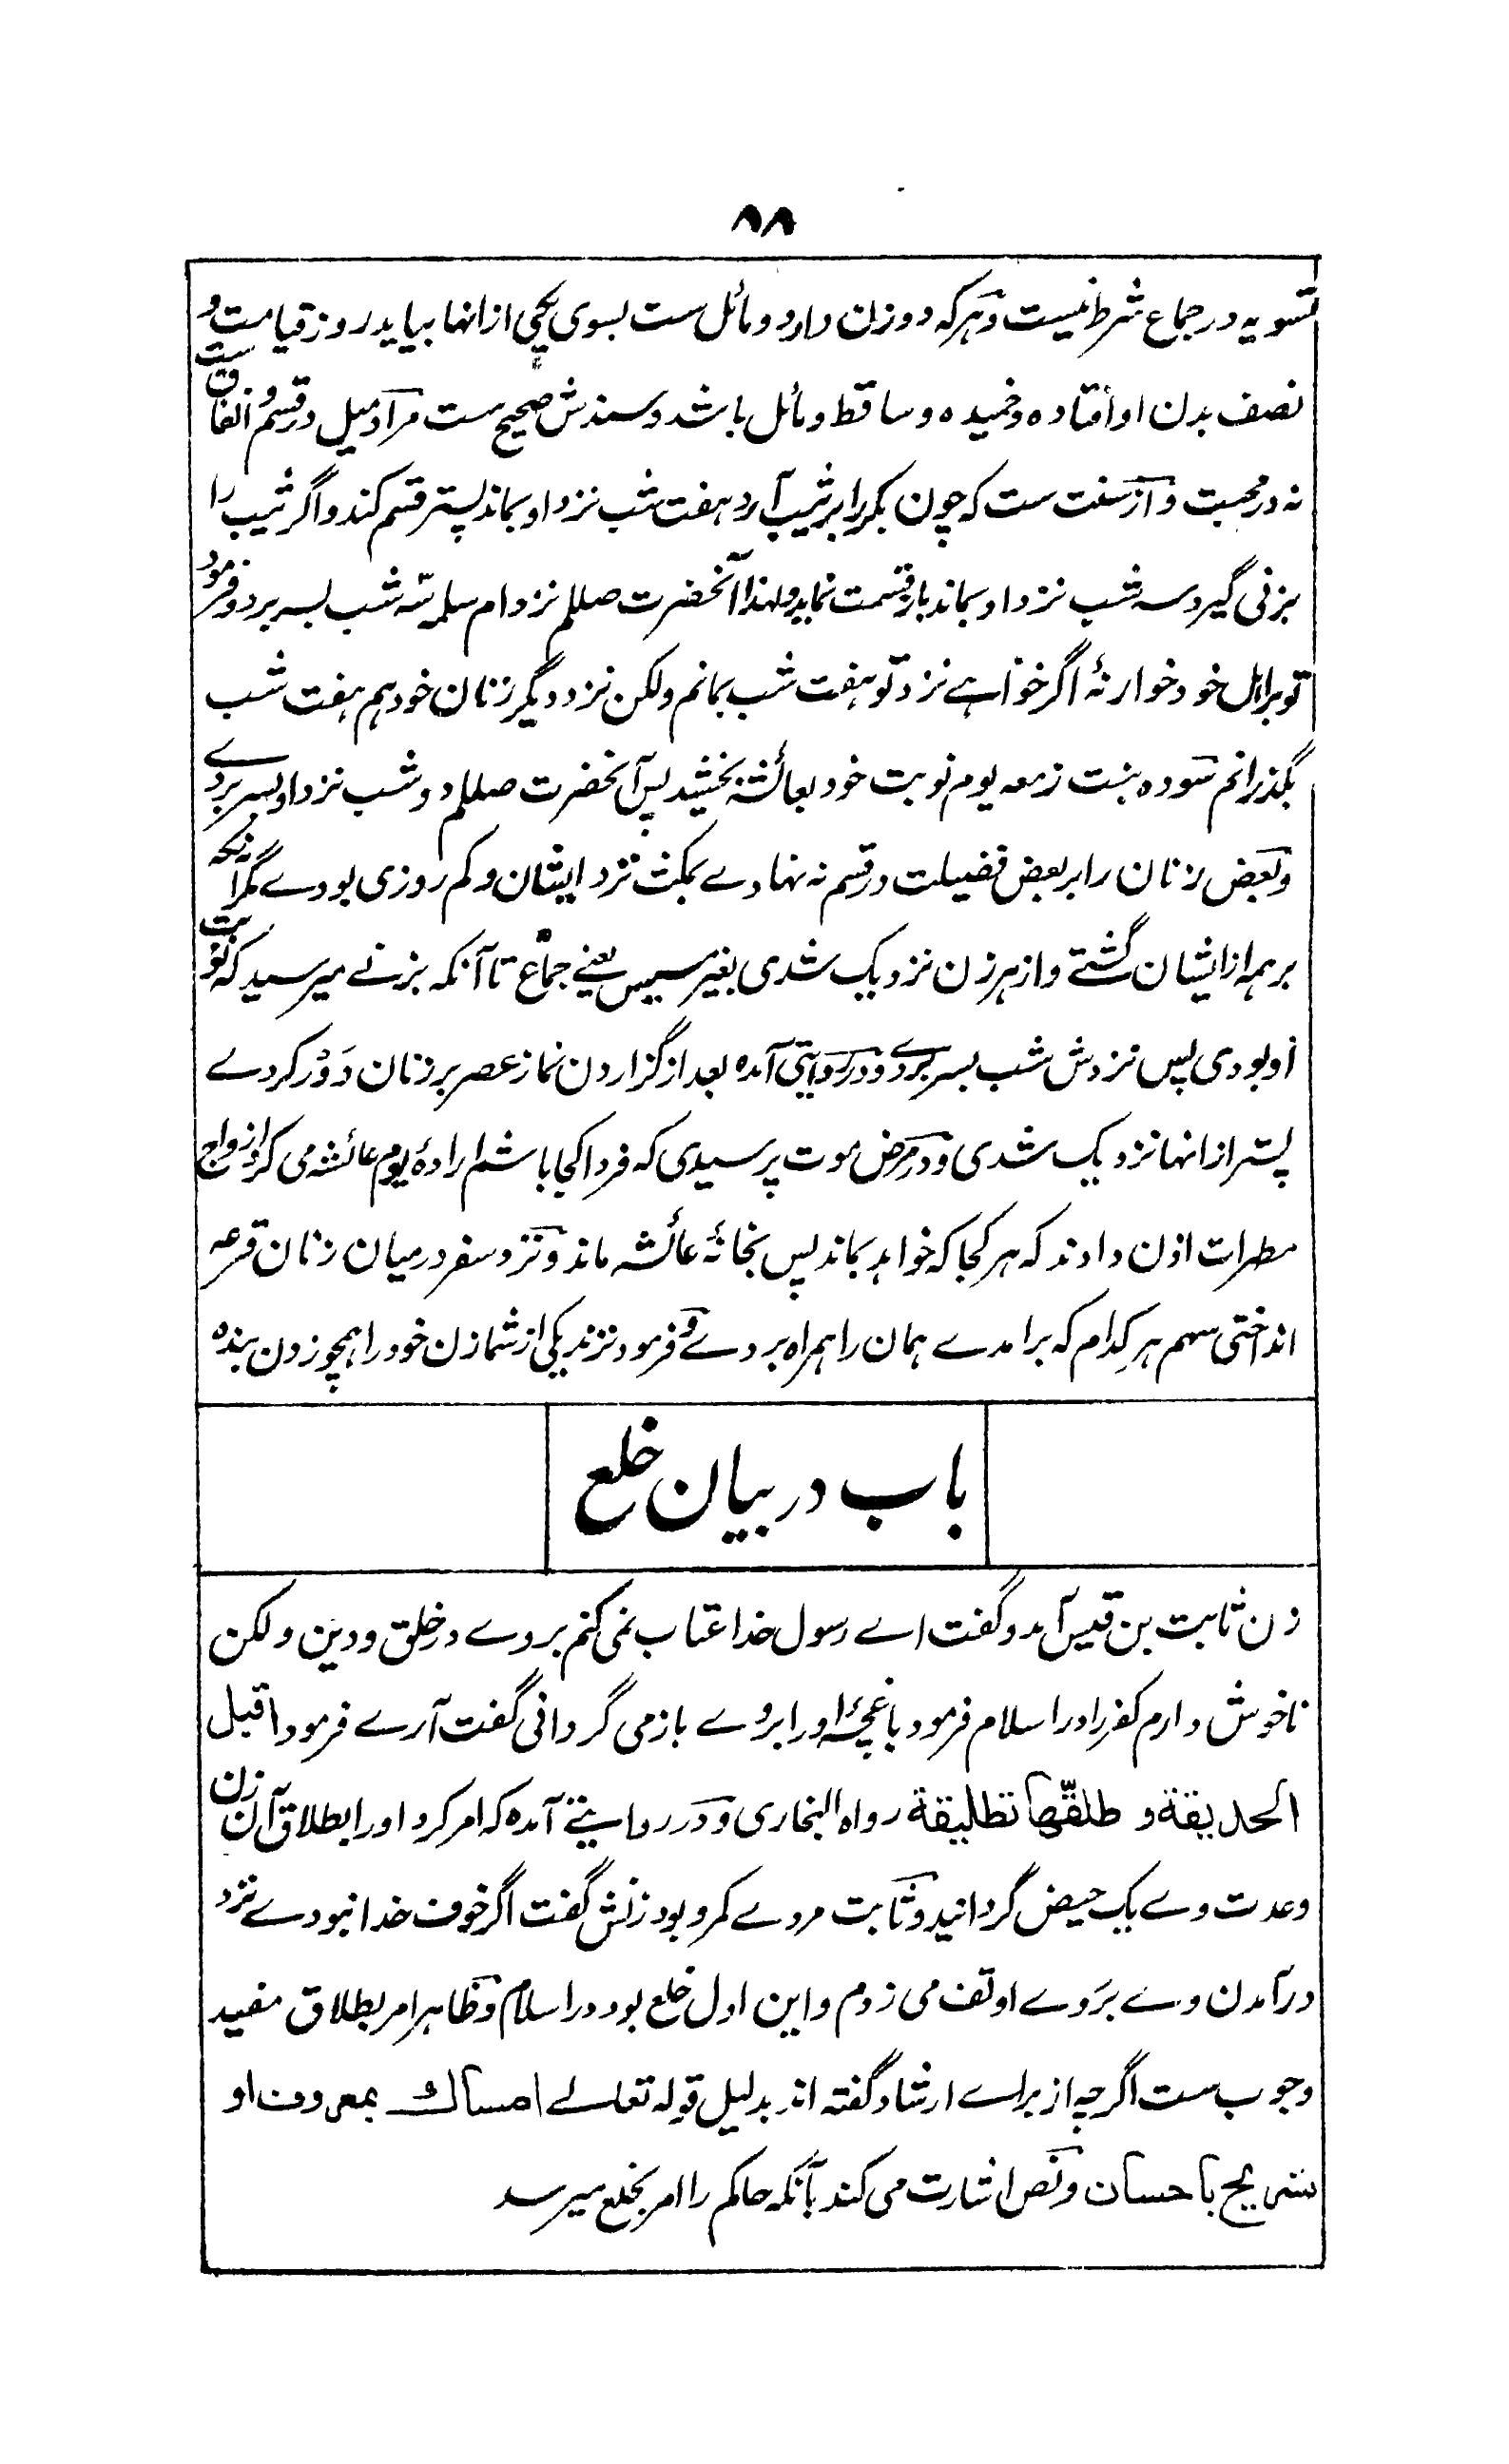 ۸۸
تسویه در جماع شرط نیست وهرکه دو زن دارد و مائل ست بسوی یکی ازانها بیاید روز قیامت و
نصف بدن او افتاده و خمیده و ساقط و مائل باشد و سندش صحیح ست مراد میل در قسم و انفاق ست
نه در محبت و از سنت ست که چون بکر را بر ثیب آرد هفت شب نزد او بماند پستر قسم کند واگر ثیب را
بزنی گیرد سه شب نزد او بماند باز قسمت نماید ولهذا آنحضرت صللم نزد ام سلمه سه شب بسر برد و فرمود
تو بر اهل خود خوار نهٔ اگر خواهے نزد تو هفت شب بمانم ولکن نزد دیگر زنان خود هم هفت شب
بگذرانم سوده بنت زمعه یوم نوبت خود بعائشه بخشید پس آنحضرت صللم دو شب نزد او بسر بردے
وبعض زنان را بر بعض فضیلت در قسم نه نهادے بمکث نزد ایشان و کم روزی بودے مگر آنکه
بر همه از ایشان گشتے و از هر زن نزدیک شدی بغیر مسیس یعنے جماع تا آنکه بزنے میرسید که نوبت
او بودی پس نزدش شب بسر بردے ودر روایتی آمده بعد از گزاردن نماز عصر بر زنان دَوْر کردے
پستر ازانها نزدیک شدی ودر مرض موت پرسیدی که فردا کجا باشم اراده یوم عائشه می کرد ازواج
مطهرات اذن دادند که هر کجا که خواهد بماند پس بخانهٔ عائشه ماند ونزد سفر درمیان زنان قرعه
انداختی سهم هر کِدام که برامدے همان را همراه بردے و فرمود نزند یکی از شما زن خود را همچو زدن بنده
باب در بیان خلع
زن ثابت بن قیس آمد و گفت اے رسول خدا عتاب نمی کنم بر وے در خلق و دین ولکن
ناخوش دارم کفر را در اسلام فرمود باغچهٔ او را بروے باز می گردانی گفت آرے فرمود اقبل
الحدیقة و طلقها تطلیقة رواه البخاری و در روایتے آمده که امر کرد او را بطلاق آن زن
وعدت وے یک حیض گردانید وثابت مردے کمرو بود زنش گفت اگر خوف خدا نبودے نزد
درآمدن وے بر روے او تف می زدم و این اول خلع بود در اسلام وظاهر امر بطلاق مفید
وجوب ست اگرچه از براے ارشاد گفته اند بدلیل قوله تعالے امساك بمعروف او
تسریح باحسان ونص اشارت می کند بآنکه حاکم را امر بخلع میرسد